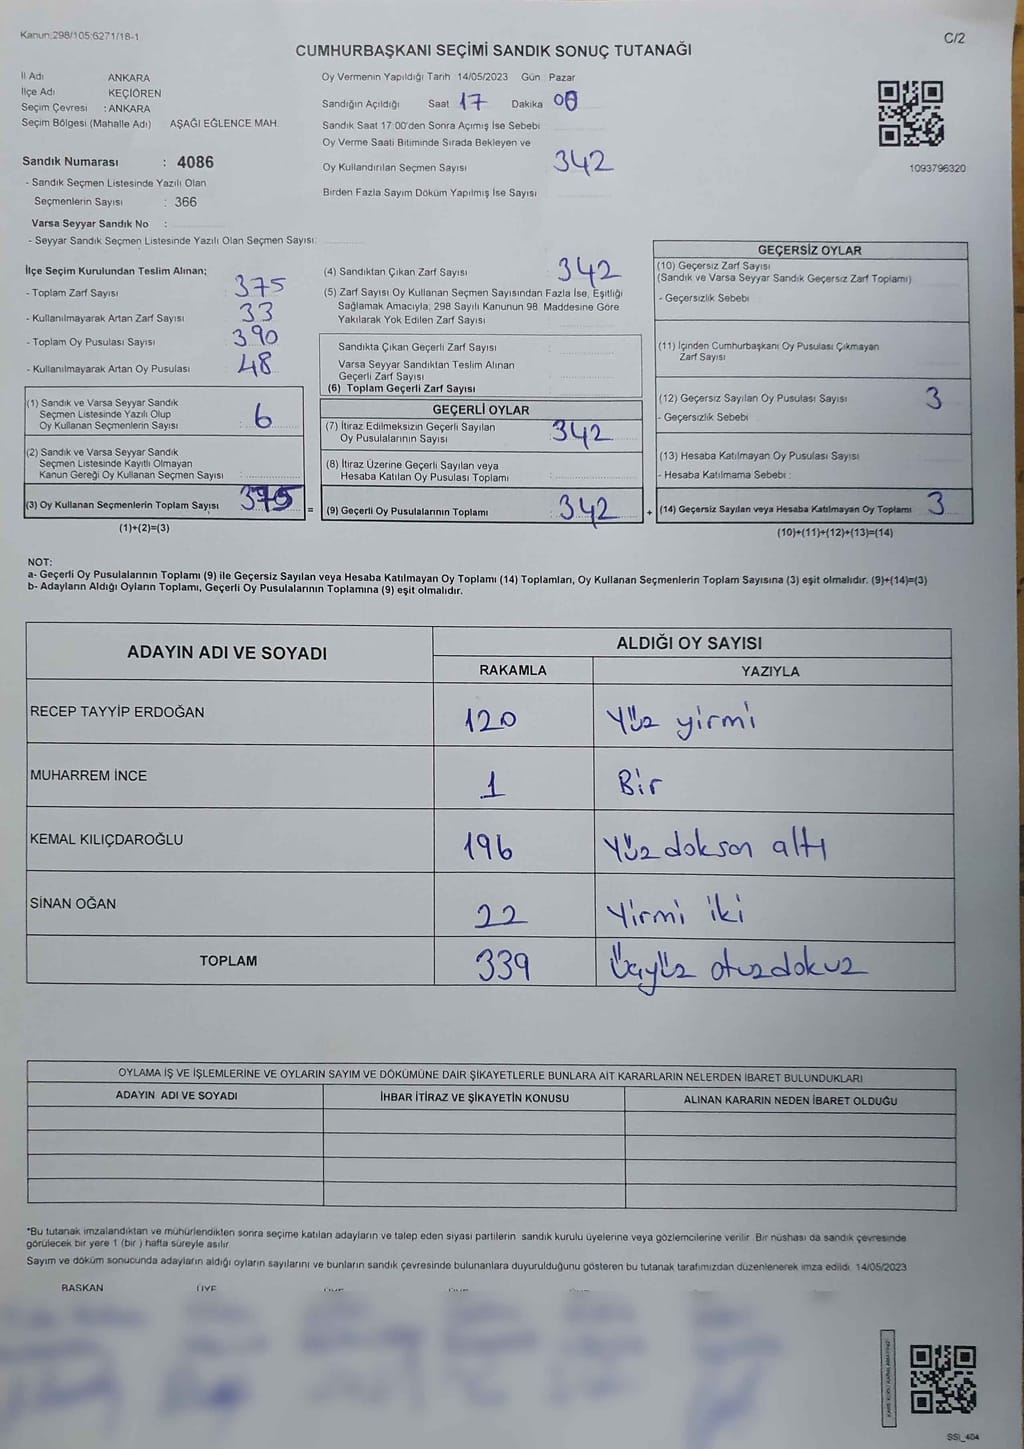 Kanun:298/105;6271/18-1
C/2
CUMHURBAŞKANI SEÇİMİ SANDIK SONUÇ TUTANAĞI
İl Adı ANKARA
İlçe Adı KEÇİÖREN
Seçim Çevresi : ANKARA
Seçim Bölgesi (Mahalle Adı) AŞAĞI EĞLENCE MAH.
Sandık Numarası : 4086
- Sandık Seçmen Listesinde Yazılı Olan
Seçmenlerin Sayısı : 366
Varsa Seyyar Sandık No :
- Seyyar Sandık Seçmen Listesinde Yazılı Olan Seçmen Sayısı:
Oy Vermenin Yapıldığı Tarih 14/05/2023 Gün Pazar
Sandığın Açıldığı Saat 17 Dakika 00
Sandık Saat 17:00'den Sonra Açımış İse Sebebi
Oy Verme Saati Bitiminde Sırada Bekleyen ve
Oy Kullandırılan Seçmen Sayısı 342
Birden Fazla Sayım Döküm Yapılmış İse Sayısı
1093796320
İlçe Seçim Kurulundan Teslim Alınan;
- Toplam Zarf Sayısı 375
- Kullanılmayarak Artan Zarf Sayısı 33
- Toplam Oy Pusulası Sayısı 390
- Kullanılmayarak Artan Oy Pusulası 48
(1) Sandık ve Varsa Seyyar Sandık
Seçmen Listesinde Yazılı Olup
Oy Kullanan Seçmenlerin Sayısı : 6
(2) Sandık ve Varsa Seyyar Sandık
Seçmen Listesinde Kayıtlı Olmayan
Kanun Gereği Oy Kullanan Seçmen Sayısı
(3) Oy Kullanan Seçmenlerin Toplam Sayısı 375 =
(1)+(2)=(3)
(4) Sandıktan Çıkan Zarf Sayısı 342
(5) Zarf Sayısı Oy Kullanan Seçmen Sayısından Fazla İse, Eşitliği
Sağlamak Amacıyla; 298 Sayılı Kanunun 98. Maddesine Göre
Yakılarak Yok Edilen Zarf Sayısı
Sandıkta Çıkan Geçerli Zarf Sayısı
Varsa Seyyar Sandıktan Teslim Alınan
Geçerli Zarf Sayısı
(6) Toplam Geçerli Zarf Sayısı
GEÇERLİ OYLAR
(7) İtiraz Edilmeksizin Geçerli Sayılan
Oy Pusulalarının Sayısı 342
(8) İtiraz Üzerine Geçerli Sayılan veya
Hesaba Katılan Oy Pusulası Toplamı
(9) Geçerli Oy Pusulalarının Toplamı : 342 +
GEÇERSİZ OYLAR
(10) Geçersiz Zarf Sayısı
(Sandık ve Varsa Seyyar Sandık Geçersiz Zarf Toplamı)
- Geçersizlik Sebebi
(11) İçinden Cumhurbaşkanı Oy Pusulası Çıkmayan
Zarf Sayısı
(12) Geçersiz Sayılan Oy Pusulası Sayısı 3
- Geçersizlik Sebebi
(13) Hesaba Katılmayan Oy Pusulası Sayısı
- Hesaba Katılmama Sebebi :
(14) Geçersiz Sayılan veya Hesaba Katılmayan Oy Toplamı 3
(10)+(11)+(12)+(13)=(14)
NOT:
a- Geçerli Oy Pusulalarının Toplamı (9) ile Geçersiz Sayılan veya Hesaba Katılmayan Oy Toplamı (14) Toplamları, Oy Kullanan Seçmenlerin Toplam Sayısına (3) eşit olmalıdır. (9)+(14)=(3)
b- Adayların Aldığı Oyların Toplamı, Geçerli Oy Pusulalarının Toplamına (9) eşit olmalıdır.
ADAYIN ADI VE SOYADI
ALDIĞI OY SAYISI
RAKAMLA YAZIYLA
RECEP TAYYİP ERDOĞAN 120 Yüz yirmi
MUHARREM İNCE 1 Bir
KEMAL KILIÇDAROĞLU 196 Yüz doksan altı
SİNAN OĞAN 22 Yirmi iki
TOPLAM 339 Üçyüz otuzdokuz
OYLAMA İŞ VE İŞLEMLERİNE VE OYLARIN SAYIM VE DÖKÜMÜNE DAİR ŞİKAYETLERLE BUNLARA AİT KARARLARIN NELERDEN İBARET BULUNDUKLARI
ADAYIN ADI VE SOYADI İHBAR İTİRAZ VE ŞİKAYETİN KONUSU ALINAN KARARIN NEDEN İBARET OLDUĞU
*Bu tutanak imzalandıktan ve mühürlendikten sonra seçime katılan adayların ve talep eden siyasi partilerin sandık kurulu üyelerine veya gözlemcilerine verilir. Bir nüshası da sandık çevresinde
görülecek bir yere 1 (bir ) hafta süreyle asılır
Sayım ve döküm sonucunda adayların aldığı oyların sayılarını ve bunların sandık çevresinde bulunanlara duyurulduğunu gösteren bu tutanak tarafımızdan düzenlenerek imza edildi. 14/05/2023
BAŞKAN ÜYE ÜYE ÜYE ÜYE
SSI_404